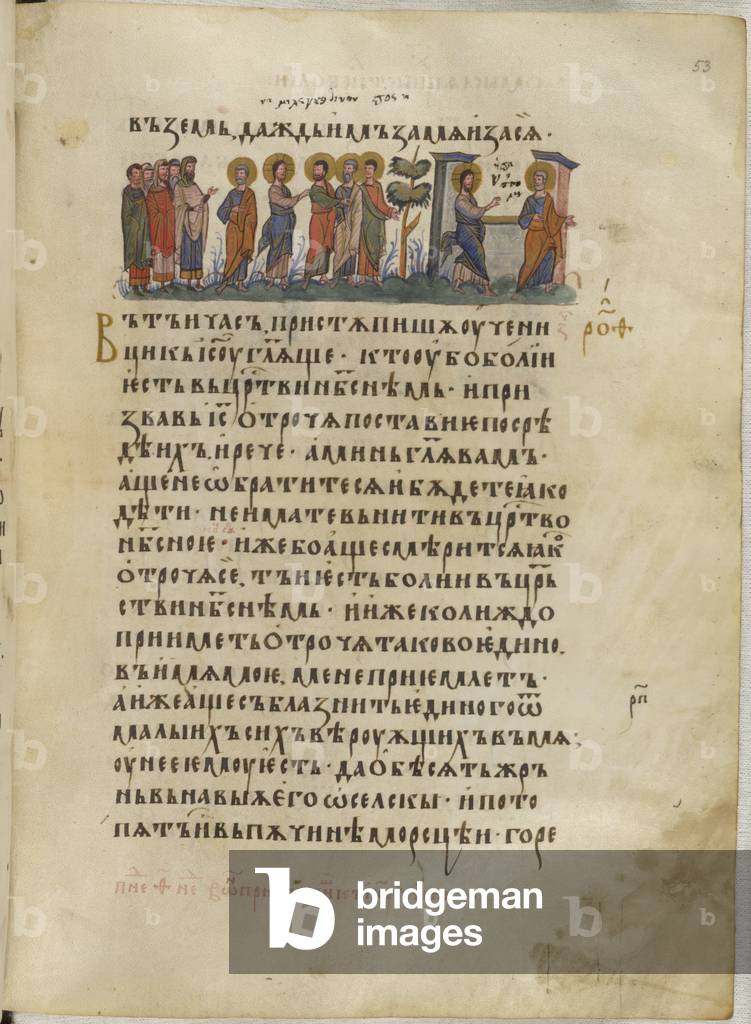 53
въземь, даждьимъзамѧизасѧ ·
Вътъичасъ, пристѫпишѫоученн
цикъі҃соугл҃ѧще · ктооубоболїи
ѥстьвьцр҃твинб҃снѣмь · ипри
звавьі҃с отрочѧпоставиѥпосрѣ
дѣихъ, ирече · аминьгл҃ѧвамъ ·
ащенеѡбратитесѧибѫдетеꙗко
дѣти · неиматевьнитивъцр҃тво
нб҃сноѥ · ижебоащесмѣритсѧꙗко
отрочѧсе, тъиѥстьболиивъцр҃ь
ствинб҃снѣмь · иижеколиждо
прииметьотрочѧтаковоѥдино,
въимѧмоѥ, менеприѥмлетъ ·
аижеащесъблазнитьѥдиногоѿ
малыихъсихъвѣроуѫщихъвъмѧ ·
оунееѥмоуѥсть · даобѣсѧтьжръ
ньвьнавыѫегоѡселскы · ипото
пѧтъивьпѫчинѣморсцѣи · горе
рп҃
bridgeman
images